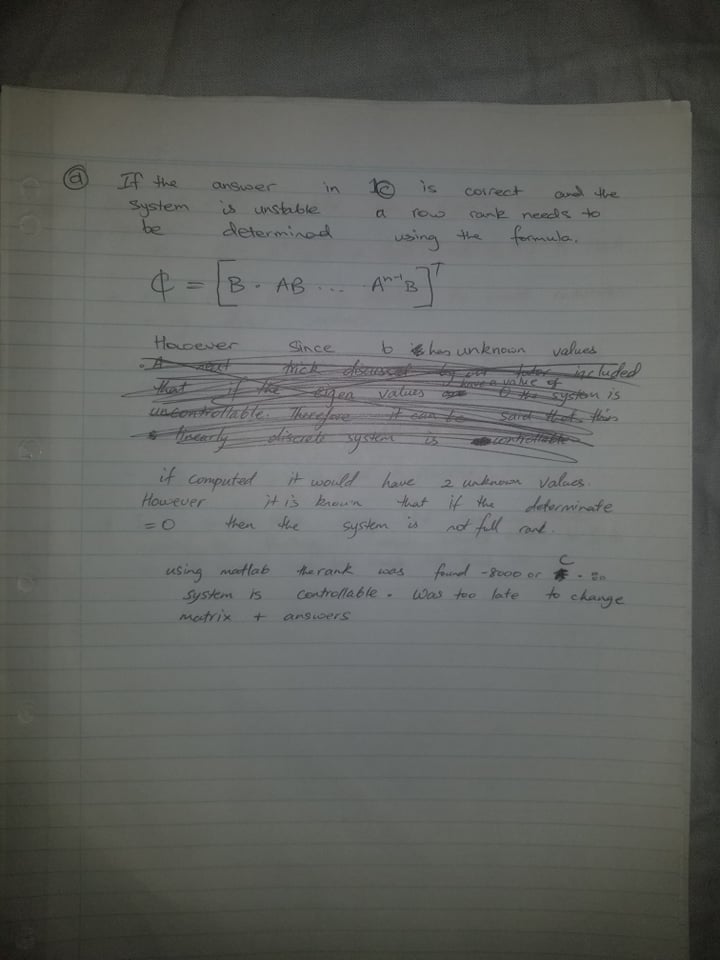 (d) If the answer in 1(c) is correct and the
system is unstable a row rank needs to
be determined using the formula.
₵ = [B . AB ... . Aⁿ⁻¹B]ᵀ
However Since b has unknown values
. A neat trick discussed by our tutor included
that if the eigen values have a value of 0 the system is
uncontrollable. Therefore it can be said that this
linearly discrete system is controllable
if computed it would have 2 unknown values.
However it is known that if the determinate
= 0 then the system is not full rank.
using matlab the rank was found -8000 or C. so
system is controllable. Was too late to change
matrix + answers